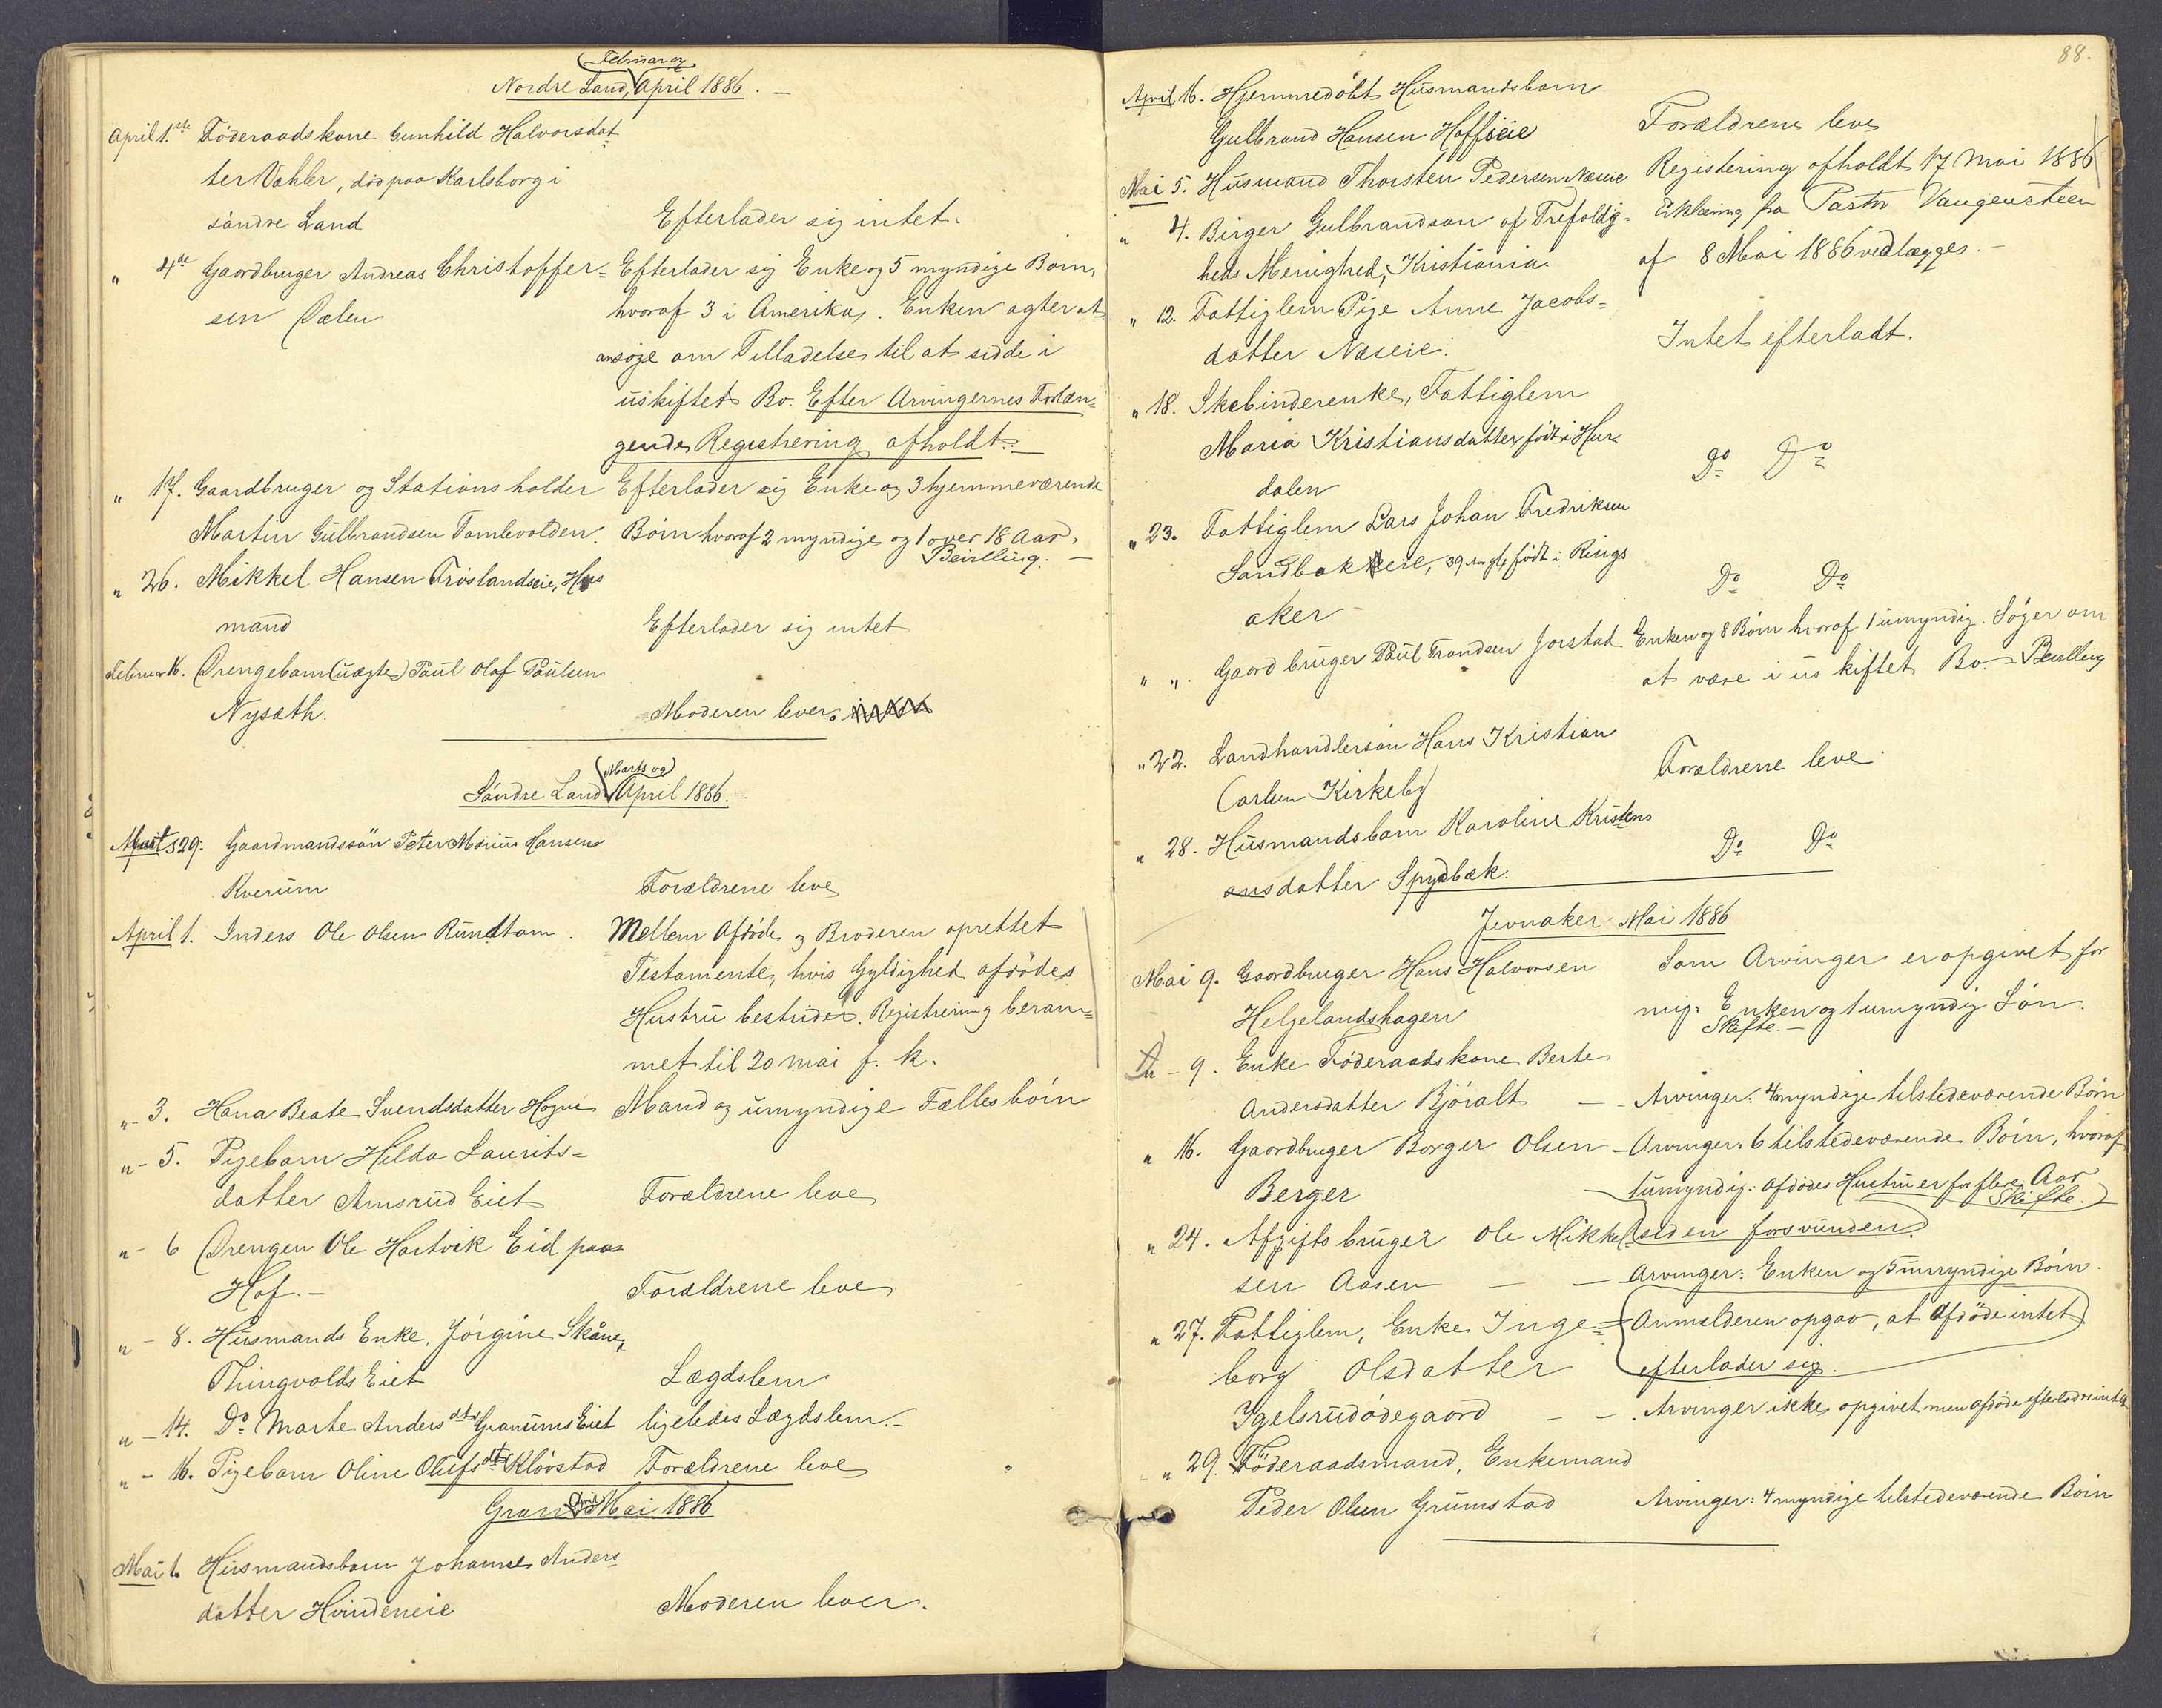 Februar og
Nordre Land, April 1886. —
April 1.ste Föderaadskone Gunhild Halvorsdat-
ter Dahler, död paa Karlsborg i
söndre Land Efterlader sig intet.
" 4de Gaardbruger Andreas Christoffer= Efterlader sig Enke og 5 myndige Börn,
sen Dælen hvoraf 3 i Amerika. Enken agter at
ansöge om Tilladelse til at sidde i
uskiftet Bo. Efter Arvingernes Forlan=
gende Registrering afholdt. —
" 17. Gaardbruger og Stationsholder Efterlader sig Enke og 3 hjemmeværende
Martin Gulbrandsen Tomlevolden. Börn hvoraf 2 myndige og 1 over 18 Aar.
Bevilling. —
" 26. Mikkel Hansen Fröslandseie, Hus
mand Efterlader sig intet
Februar 16. Drengebarn (uægte) Paul Olaf Paulsen
Nysæth. Moderen lever.
Marts og
Söndre Land April 1886.
Marts 29. Gaardmandssön Peter Marius Hansen
Kverum Forældrene leve
April 1. Inders Ole Olsen Rundtom. Mellem Afdöde og Broderen oprettet
Testamente, hvis Gyldighed afdödes
Hustru bestrider. Registrering beram=
met til 20 mai f. k.
"- 3. Hana Beate Svendsdatter Hogne Mand og umyndige Fælles börn
"- 5. Pigebarn Hilda Laurits=
datter Amsrud Eiet Forældrene leve
"- 6 Drengen Ole Hartvik Eid paa
Hof. — Forældrene leve
" - 8. Husmands Enke, Jörgine Skåne,
Thingvolds Eiet Lægdslem
" - 14. Do Marte Anders dtr Granums Eiet ligeledes Lægdslem. —
" - 16. Pigebarn Oline Olufs dtr Klövstad Forældrene leve
Gran April Mai 1886
Mai 1. Husmandsbarn Johanne Anders
datter Hvindeneie Moderen lever.
88.
April 16. Hjemmedöbt Husmandsbarn
Gulbrand Hansen Hoffseie Forældrene leve
Mai 5. Husmand Thorsten Pedersen Næseie Registering afholdt 17 Mai 1886
" 4. Birger Gulbrandson af Trefoldig= Erklæring fra Pastor Vangensteen
heds Menighed, Kristiania. af 8 Mai 1886 vedlægges. —
" 12. Fattiglem Pige Anne Jacobs=
datter Næseie. Intet efterladt.
" 18. Skobinderenke, Fattiglem
Maria Kristiansdatter födt i Hur
dalen Do Do
" 23. Fattiglem Lars Johan Fredriksen
Sandbakkeie, 39 Aar gl, födt i Rings
aker Do Do
" ". Gaardbruger Paul Trondsen Jorstad Enken og 8 Börn hvoraf 1 umyndig. Söger om
at være i uskiftet Bo. — Bevilling
" 22. Landhandlersön Hans Kristian
Carlsen Kirkeby Forældrene leve
" 28. Husmandsbarn Karoline Kristens
ansdatter Spydbæk. Do Do
Jevnaker Mai 1886
Mai 9. Gaardbruger Hans Halvorsen Som Arvinger er opgivet for
Helgelandshagen mig: Enken og 1 umyndig Sön.
Skifte. —
" - 9. Enke Föderaadskone Berte
Andersdatter Björalt — Arvinger: 4 myndige tilstedeværende Börn
" 16. Gaardbruger Borger Olsen — Arvinger: 6 tilstedeværende Börn, hvoraf
Berger — 1 umyndig: afdödes Hustru er for flere Aar
Skifte.
" 24. Afgiftsbruger Ole Mikkel siden forsvunden.
sen Aasen — — Arvinger: Enken og 5 umyndige Börn.
" 27. Fattiglem, Enke Inge= Anmelderen opgav, at Afdöde intet
borg Olsdatter efterlader sig.
Igelsrudödegaard — — Arvinger ikke opgivet men afdöde efterlod sig intet
" 29. Föderaadsmand, Enkemand
Peder Olsen Grumstad Arvinger: 4 myndige tilstedeværende Börn